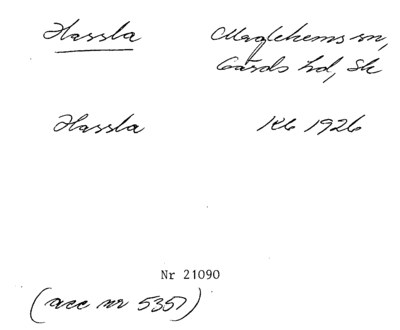 Hassla Maglehems sn,
Gärds hd, Sk
Hassla Kb 1926
Nr 21090
(acc nr 5357)